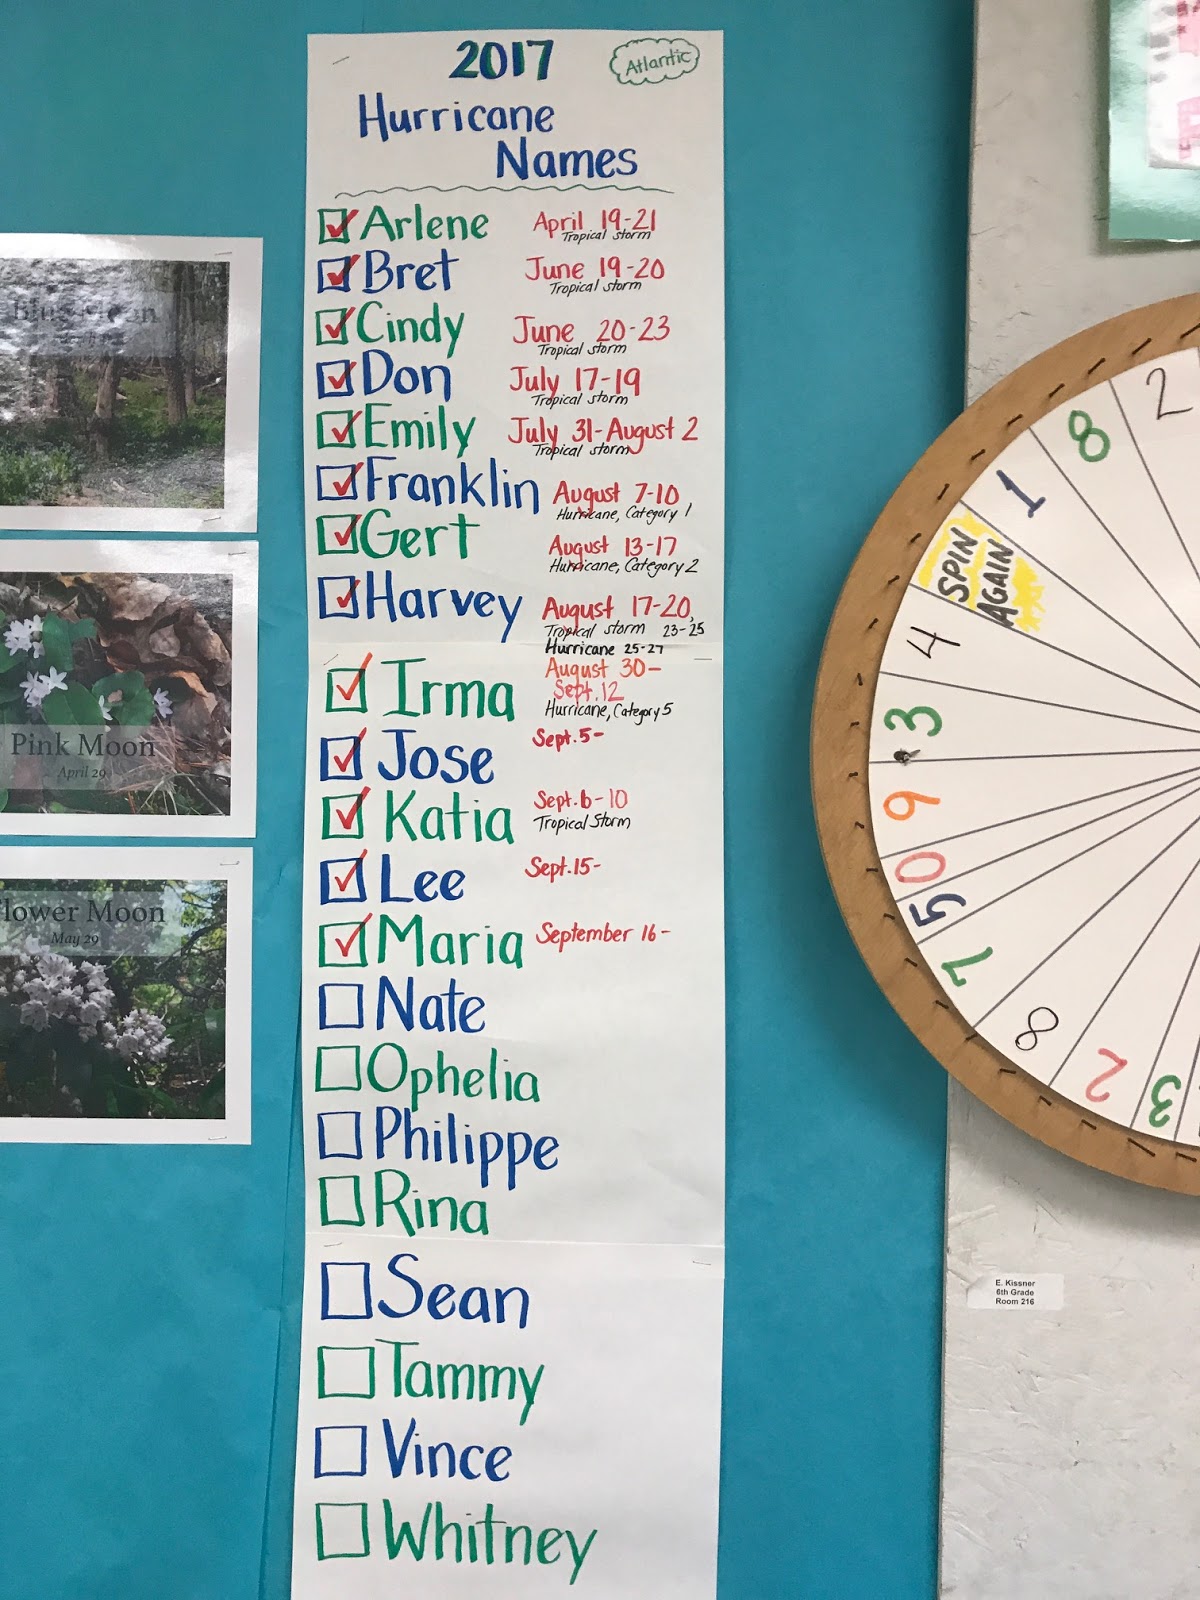 2017
Atlantic
Hurricane
Names
Arlene April 19-21
Tropical storm
Bret June 19-20
Tropical storm
Cindy June 20-23
Tropical storm
Don July 17-19
Tropical storm
Emily July 31-August 2
Tropical storm
Franklin August 7-10
Hurricane, Category 1
Gert August 13-17
Hurricane, Category 2
Harvey August 17-20,
Tropical storm 23-25
Hurricane 25-27
Irma August 30-
Sept. 12
Hurricane, Category 5
Jose Sept. 5-
Katia Sept. 6-10
Tropical Storm
Lee Sept. 15-
Maria September 16-
Nate
Ophelia
Philippe
Rina
Sean
Tammy
Vince
Whitney
Blue Moon
Pink Moon
April 29
lower Moon
May 29
2
8
1
SPIN
AGAIN
4
3
9
0
5
7
8
2
3
E. Kissner
6th Grade
Room 216